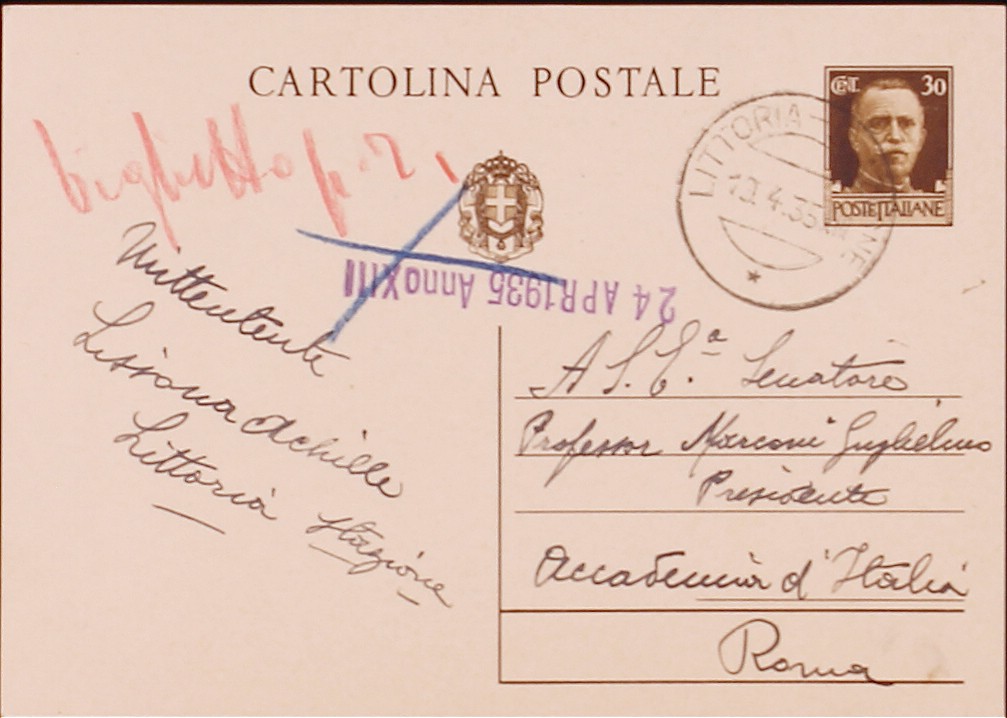 CARTOLINA POSTALE
CENT. 30
POSTE ITALIANE
LITTORIA
24 APR 1935 Anno XIII
biglietto
Mittentente
Achille
Littoria Stazione
A S. E.a Senatore
Professor Marconi Guglielmo
Presidente
Accademia d'Italia
Roma